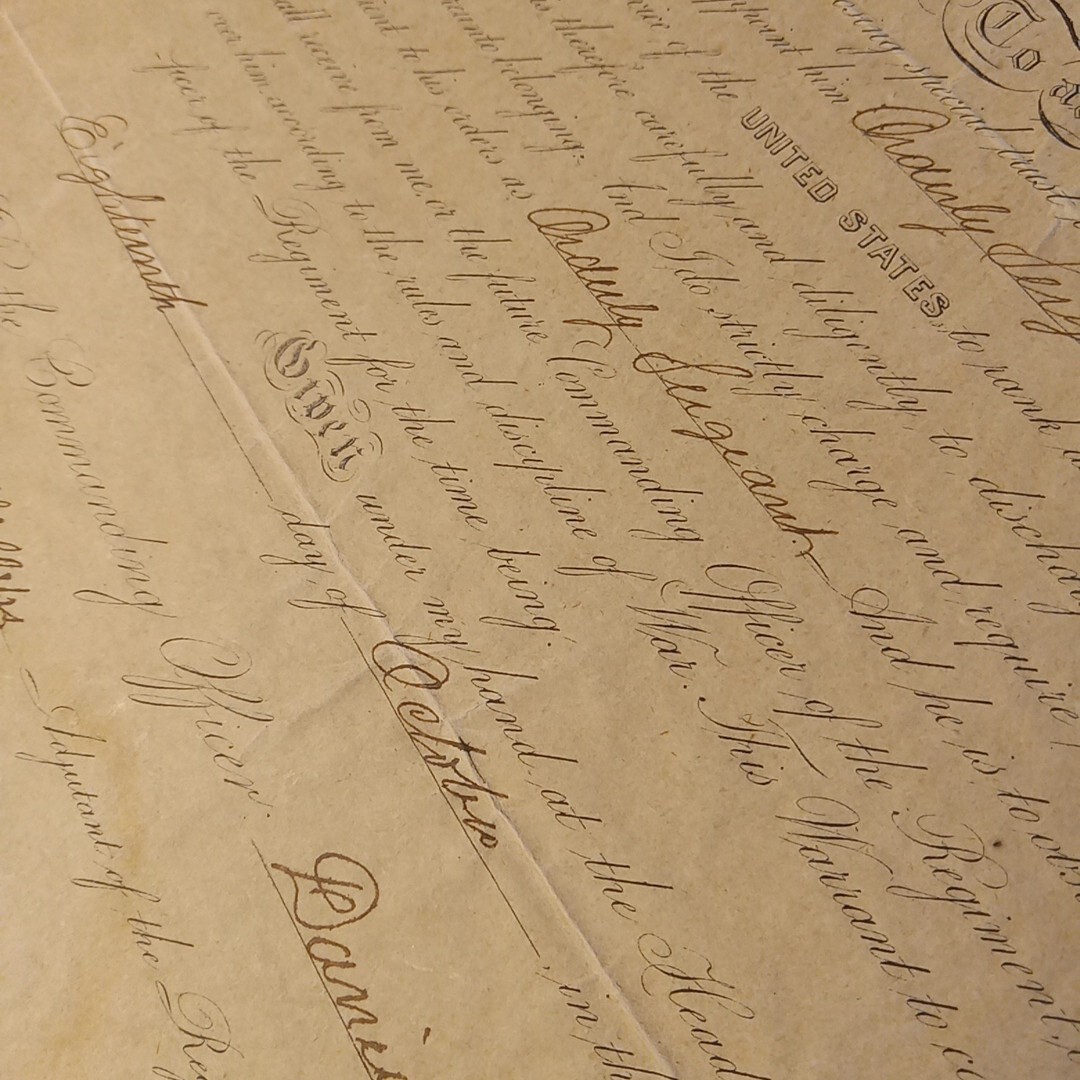 To a
osing special trust
ppoint him Orderly Serg
vice of the UNITED STATES, to rank
s therefore carefully and diligently to discharg
reunto belonging: And I do strictly charge, and require
ient to his orders as Orderly Sergeant And he is to obs
all receive from me, or the future Commanding Officer of the Regiment,
over him according to the rules and discipline of War. This Warrant to co
per of the Regiment for the time being.
Given under my hand, at the Head
Eighteenth day of October, in th
the Commanding Officer. Danie
Adjutant of the Reg